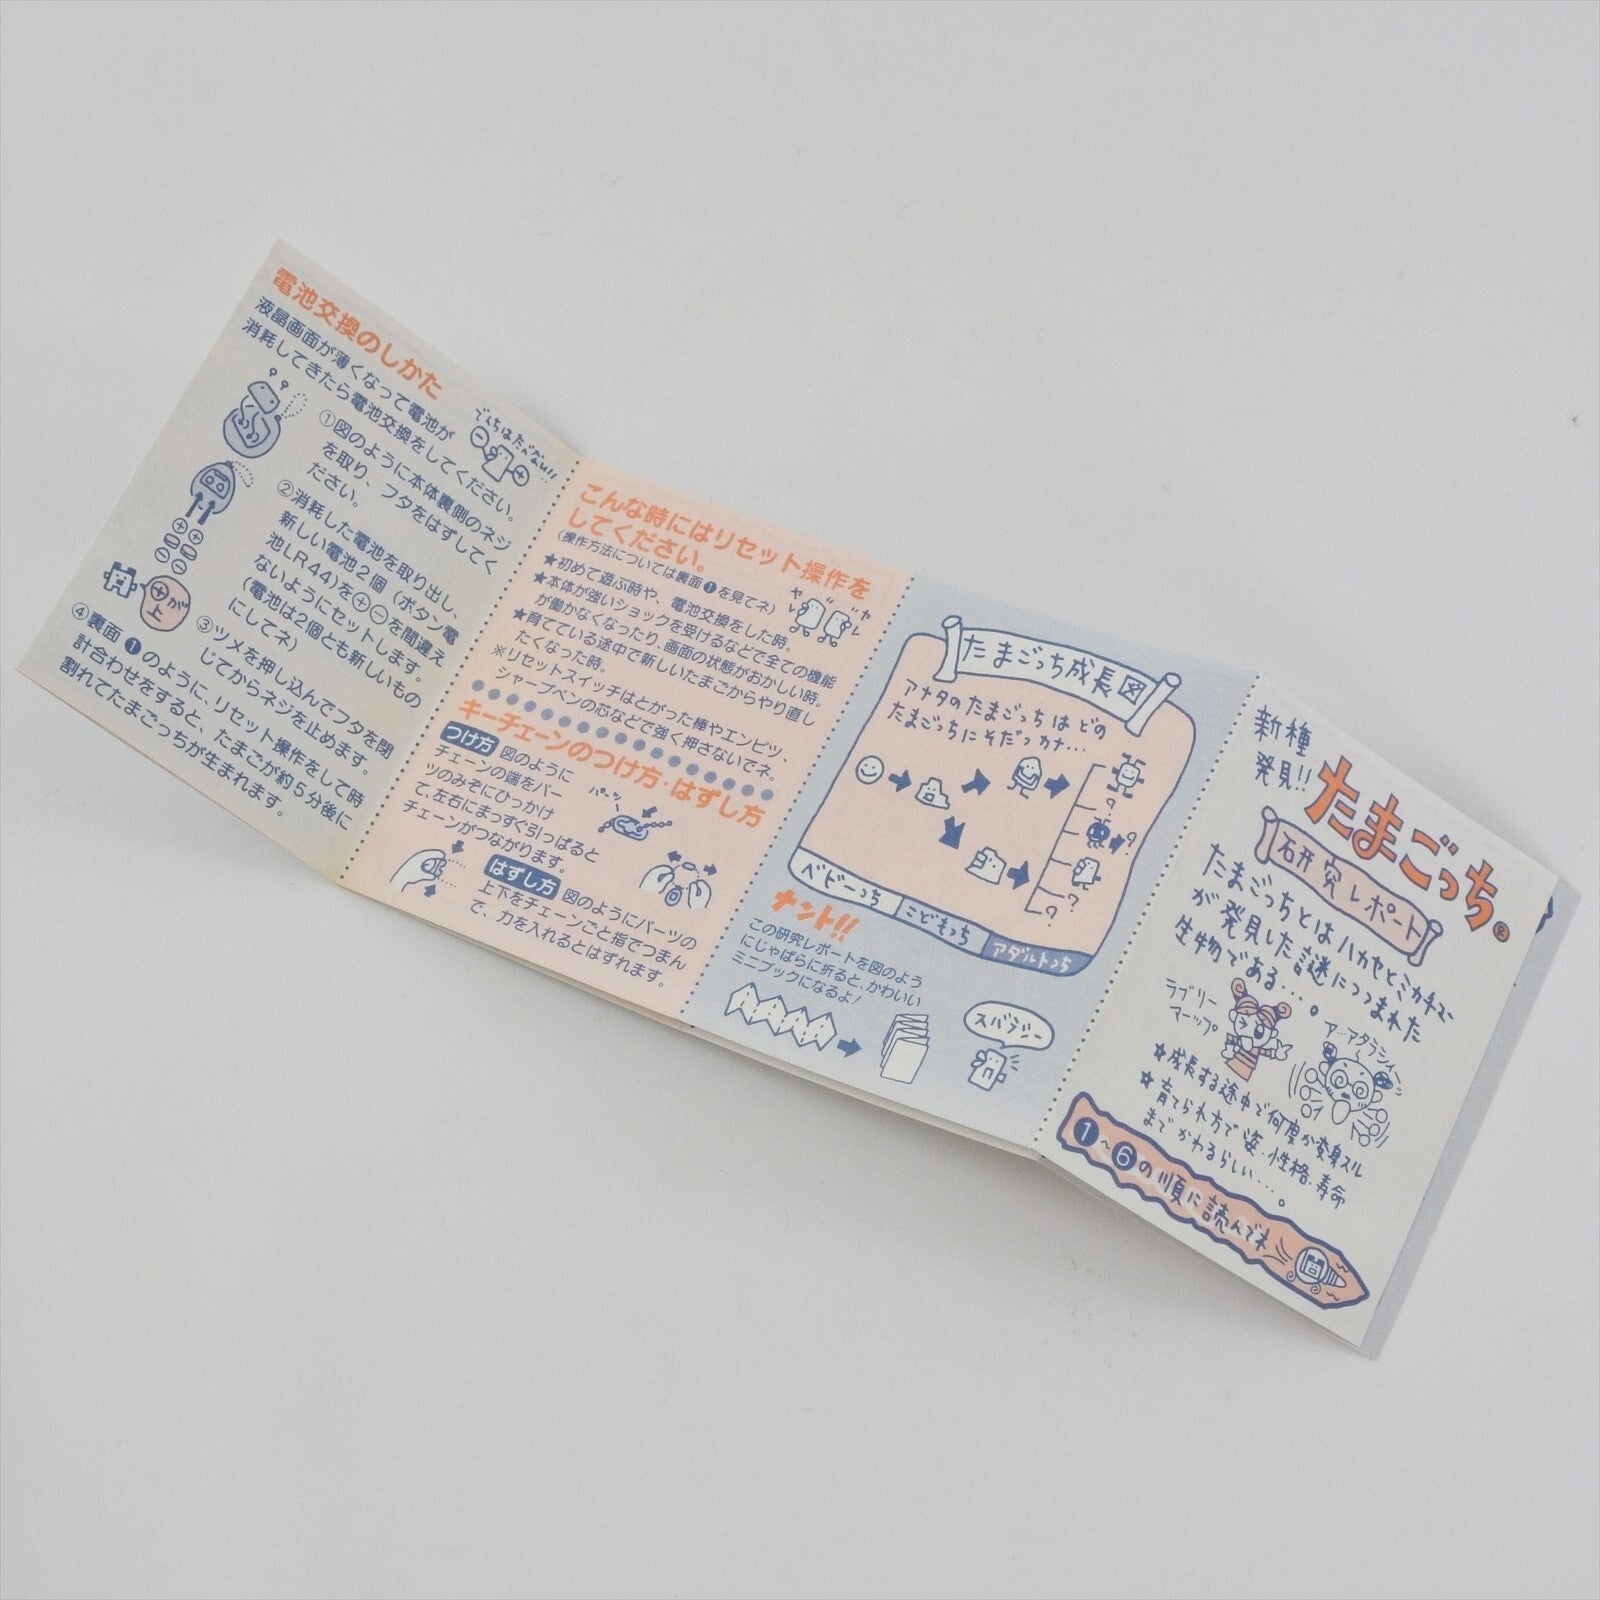 電池交換のしかた
液晶画面が薄くなって電池が
消耗してきたら電池交換をしてください。
でんちはたべない!!
①図のように本体裏側のネジ
を取り、フタをはずしてく
ださい。
②消耗した電池を取り出し、
新しい電池2個(ボタン電
池LR44)を⊕⊖を間違え
ないようにセットします。
(電池は2個とも新しいもの
にしてネ)
⊕が
上
③ツメを押し込んでフタを閉
じてからネジを止めます。
④裏面❶のように、リセット操作をして時
計合わせをすると、たまごが約5分後に
割れてたまごっちが生まれます。
こんな時にはリセット操作を
してください。
(操作方法については裏面❶を見てネ)
★初めて遊ぶ時や、電池交換をした時。
★本体が強いショックを受けるなどで全ての機能
が働かなくなったり、画面の状態がおかしい時。
★育てている途中で新しいたまごからやり直し
たくなった時。
※リセットスイッチはとがった棒やエンピツ、
シャープペンの芯などで強く押さないでネ。
ヤレ
ヤレ
キーチェーンのつけ方・はずし方
つけ方 図のように
チェーンの端をパー
ツのみぞにひっかけ
て、左右にまっすぐ引っぱると
チェーンがつながります。
パーツ
はずし方 図のようにパーツの
上下をチェーンごと指でつまん
で、力を入れるとはずれます。
たまごっち成長図
アナタのたまごっちはどの
たまごっちにそだつカナ…
?
?
?
?
ベビーっち
こどもっち
アダルトっち
ナント!!
この研究レポートを図のよう
にじゃばらに折ると、かわいい
ミニブックになるよ!
スバラシー
新種
発見!!
たまごっち®
研究レポート
たまごっちとはハカセとミカチュ
が発見した謎につつまれた
生物である…。
ラブリー
マーップ
ア…アタラシイ
☆成長する途中で何度か変身スル
☆育てられ方で姿・性格・寿命
までかわるらしい…。
❶~❻の順に読んでネ